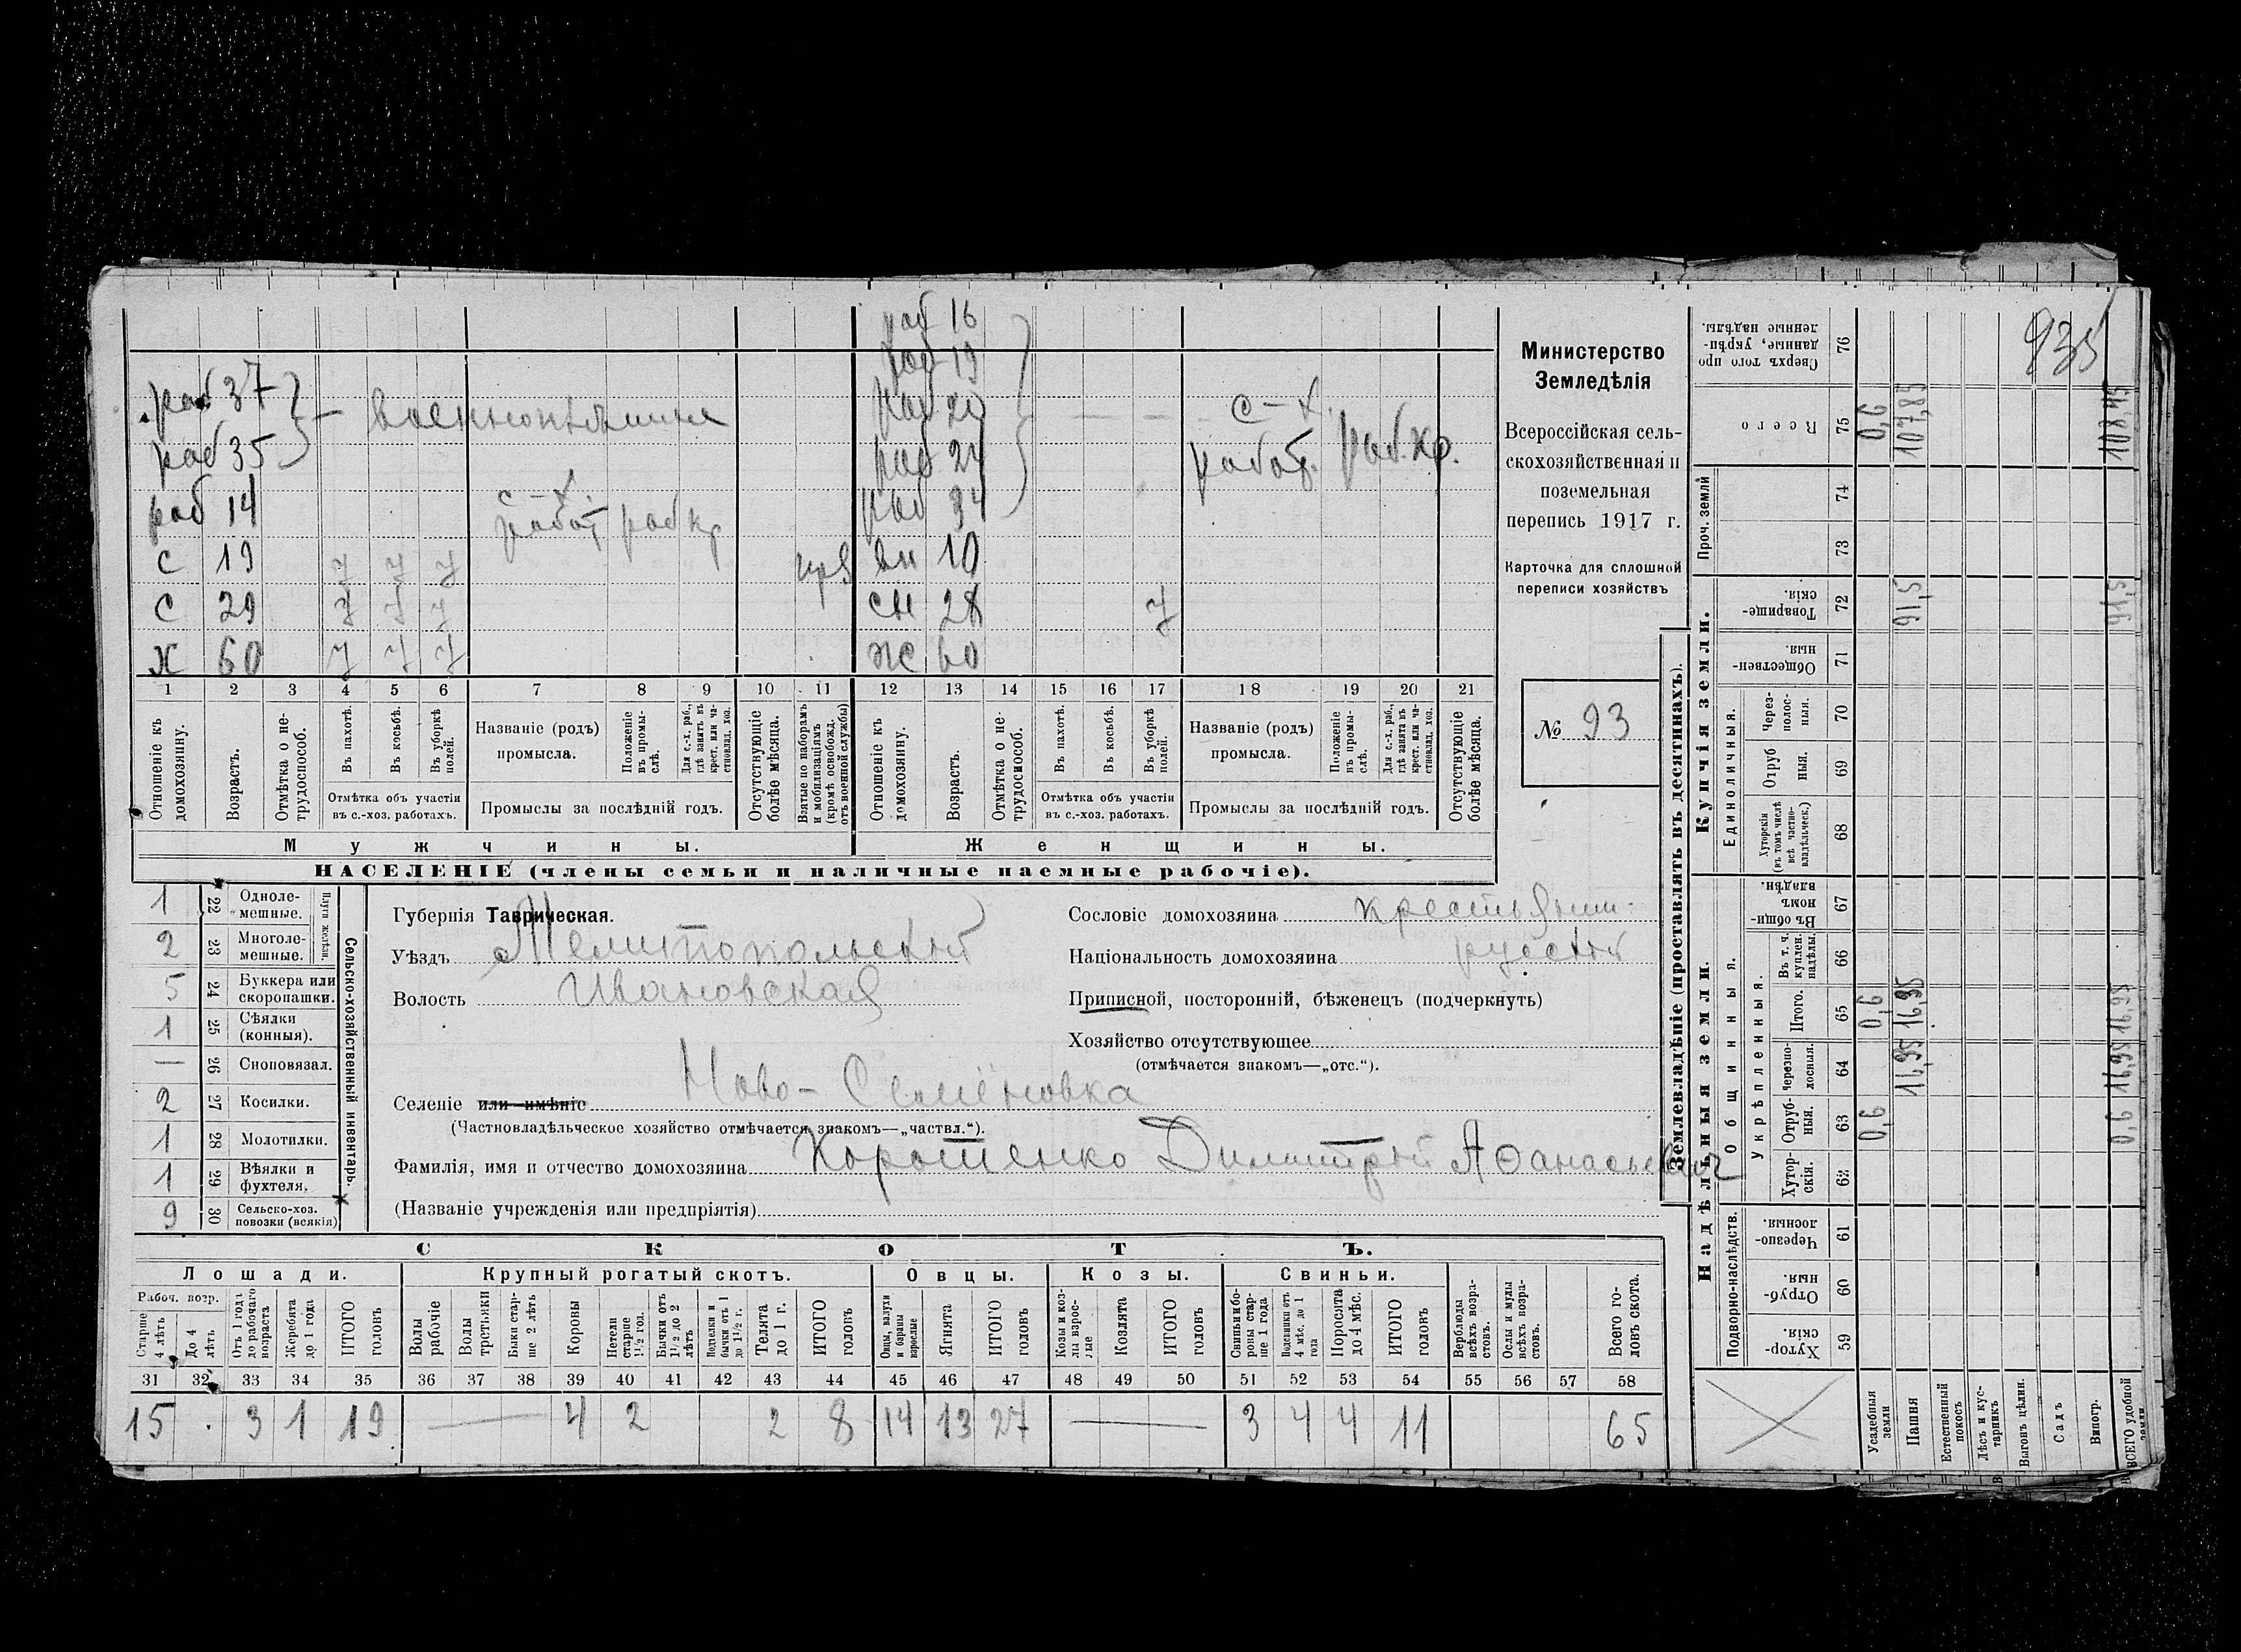 935
раб 16
раб 19
раб 37 — военнопленные раб 20 с-х.
раб 35 раб 24 работ. раб. кр.
раб 14 с-х. работ раб кр раб 34
с 19 вн 10
с 29 сн 28
х 60 ж 60
1 2 3 4 5 6 7 8 9 10 11 12 13 14 15 16 17 18 19 20 21
Отношеніе къ домохозяину.
Возрастъ.
Отмѣтка о нетрудоспособ.
Въ пахотѣ.
Въ косьбѣ.
Въ уборкѣ полей.
Отмѣтка объ участіи въ с.-хоз. работахъ.
Названіе (родъ) промысла.
Положеніе въ промыслѣ.
Для с.-х. раб., гдѣ занятъ въ крест. или частновлад. хоз.
Промыслы за послѣдній годъ.
Отсутствующіе болѣе мѣсяца.
Взятые по наборамъ и мобилизаціямъ (кромѣ освобожд. отъ военной службы)
Отношеніе къ домохозяину.
Возрастъ.
Отмѣтка о нетрудоспособ.
Въ пахотѣ.
Въ косьбѣ.
Въ уборкѣ полей.
Отмѣтка объ участіи въ с.-хоз. работахъ.
Названіе (родъ) промысла.
Положеніе въ промыслѣ.
Для с.-х. раб., гдѣ занята въ крест. или частновлад. хоз.
Промыслы за послѣдній годъ.
Отсутствующіе болѣе мѣсяца.
Мужчины.
Женщины.
НАСЕЛЕНІЕ (члены семьи и наличные наемные рабочіе).
Министерство
Земледѣлія
Всероссійская сель-
скохозяйственная и
поземельная
перепись 1917 г.
Карточка для сплошной
переписи хозяйствъ
№ 93
Сельско-хозяйственный инвентарь.
Плуги желѣзн.
1 22 Одноле-мешные.
2 23 Многоле-мешные.
5 24 Буккера или скоропашки.
1 25 Сѣялки (конныя).
— 26 Сноповязал.
2 27 Косилки.
1 28 Молотилки.
1 29 Вѣялки и фухтеля.
9 30 Сельско-хоз. повозки (всякія)
Губернія Таврическая.
Уѣздъ Мелитопольский
Волость Ивановская
Селеніе или имѣніе Ново-Семёновка
(Частновладѣльческое хозяйство отмѣчается знакомъ—„частвл.“).
Фамилія, имя и отчество домохозяина Хорошенко Димитрий Афанасьевич
(Названіе учрежденія или предпріятія)
Сословіе домохозяина крестьянин
Національность домохозяина русский
Приписной, посторонній, бѣженецъ (подчеркнуть)
Хозяйство отсутствующее
(отмѣчается знакомъ—„отс.“).
СКОТЪ.
Лошади. Крупный рогатый скотъ. Овцы. Козы. Свиньи.
Рабоч. возр.
Старше 4 лѣтъ
До 4 лѣтъ
Отъ 1 года до рабочаго возраста
Жеребята до 1 года
ИТОГО головъ
Волы рабочіе
Волы третьяки
Быки старше 2 лѣтъ
Коровы
Нетели старше 1½ год.
Бычки отъ 1½ до 2 лѣтъ
Подтелки и бычки отъ 1 до 1½ г.
Телята до 1 г.
ИТОГО головъ
Овцы, валухи и бараны взрослые
Ягнята
ИТОГО головъ
Козы и козлы взрослые
Козлята
ИТОГО головъ
Свиньи и боровы старше 1 года
Подсвинки отъ 4 мѣс. до 1 года
Поросята до 4 мѣс.
ИТОГО головъ
Верблюды всѣхъ возрастовъ.
Ослы и мулы всѣхъ возрастовъ.
Всего головъ скота.
31 32 33 34 35 36 37 38 39 40 41 42 43 44 45 46 47 48 49 50 51 52 53 54 55 56 57 58
15 . 3 1 19 — 4 2 2 8 14 13 27 — 3 4 4 11 65
Землевладѣніе (проставлять въ десятинахъ).
Купчія земли.
Надѣльныя земли.
Единоличныя.
Общинныя.
Укрѣпленныя.
Подворно-наслѣдств.
Проч. земли
Сверхъ того проданные, укрѣпленные надѣлы. 76
Всего 75 0,6 107,85 108,45
74
73
Товарищескія. 72 91,5 91,5
Общественныя. 71
Черезполосныя. 70
Отрубныя. 69
Хуторскія (въ томъ числѣ всѣ частновладѣльческ.) 68
Въ общинномъ владѣн. 67
Въ т. ч. куплен. надѣлы. 66
Итого. 65 0,6 16,35 16,95
Черезполосныя. 64 16,35 16,95
Отрубныя. 63 0,6 0,6
Хуторскія. 62
Черезполосныя. 61
Отрубныя. 60
Хуторскія. 59
Усадебныя земли
Пашня
Естественный покосъ
Лѣсъ и кустарникъ
Выгонъ цѣлин.
Садъ
Виногр.
ВСЕГО удобной земли